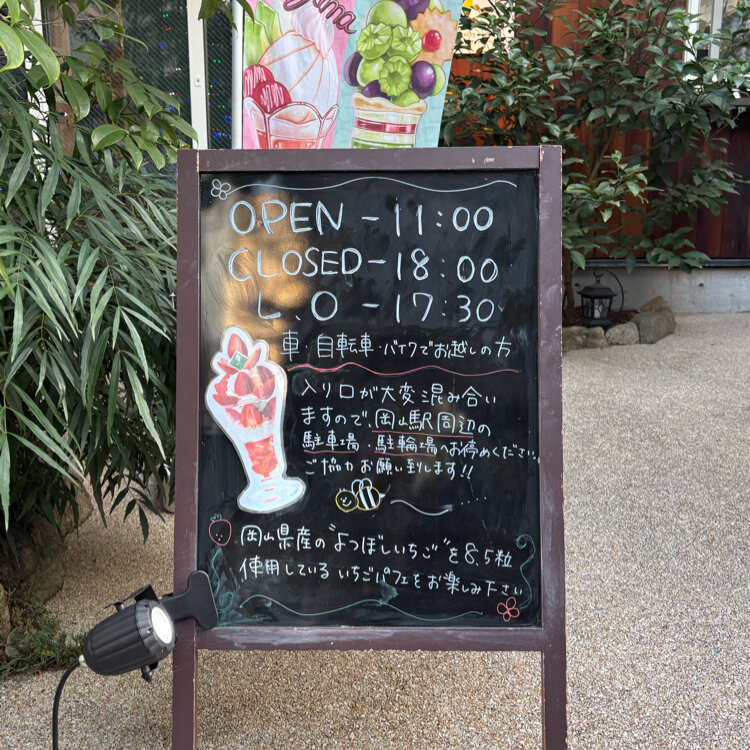 yama
OPEN - 11:00
CLOSED - 18:00
L.O - 17:30
車・自転車・バイクでお越しの方
入り口が大変混み合い
ますので、岡山駅周辺の
駐車場・駐輪場へお停めください。
ご協力お願い到します!!
岡山県産の"よつぼしいちご"を8.5粒
使用しているいちごパフェをお楽しみ下さい